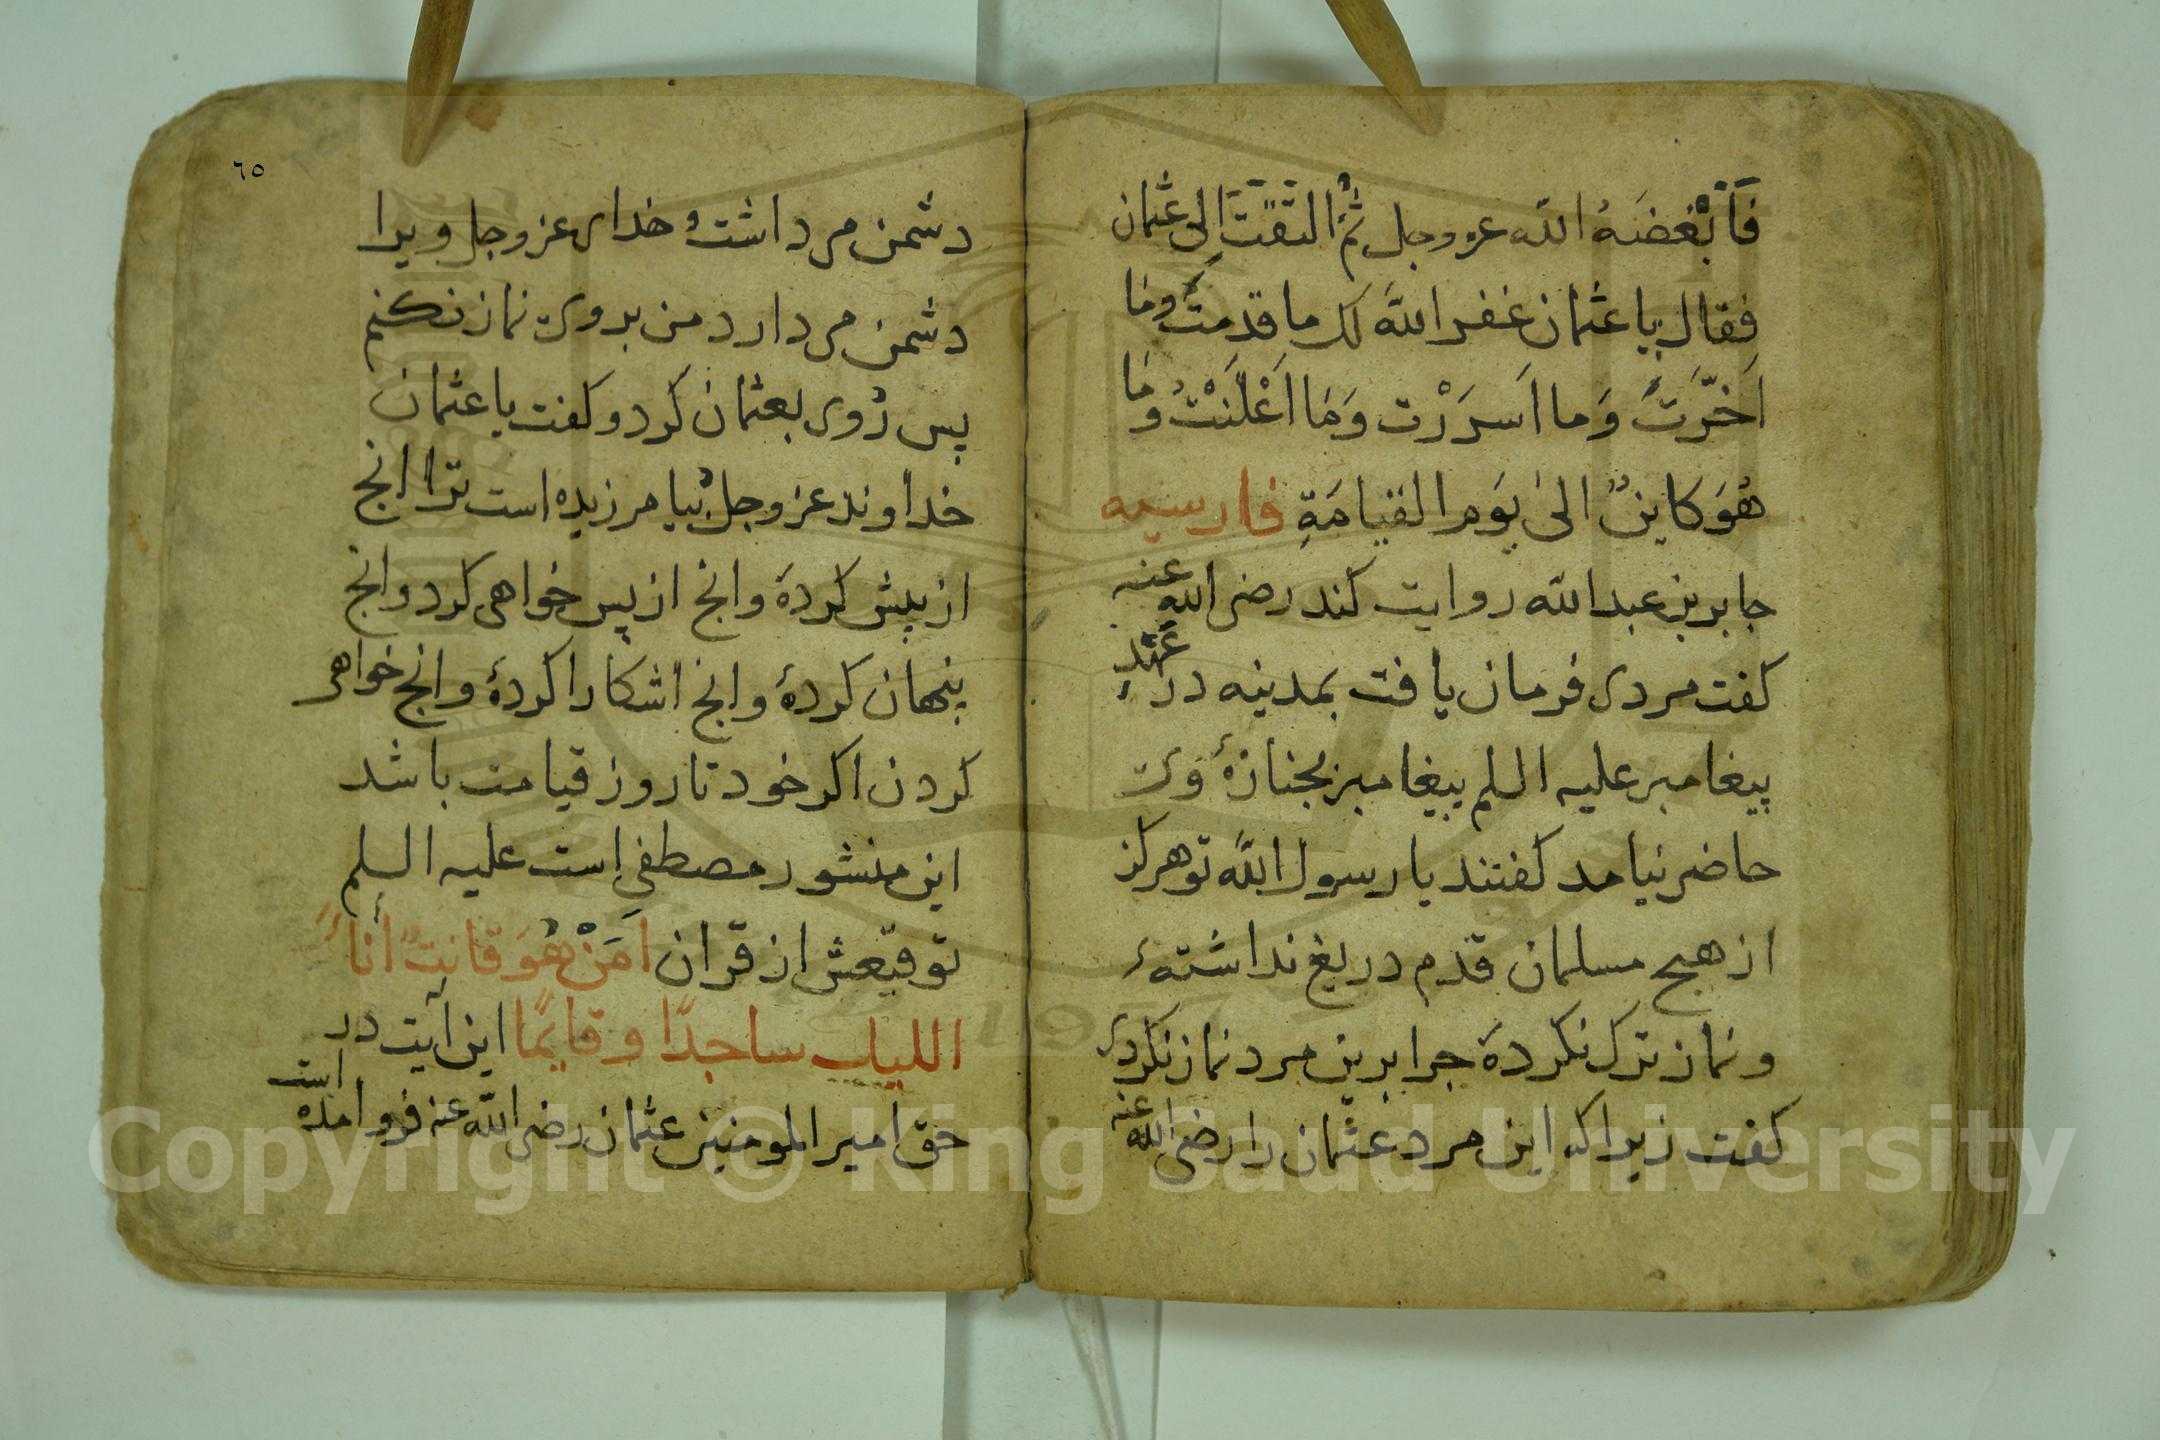 فَاَبْغَضَهُ الله عز وجل ثُمَّ التَفَتَ اِلى عثمان
فقال يا عثمان غفر اللهَ لك ما قدمتَ وما
اَخَّرَتَ وَما اَسرَرْت وَمَا اَعْلَنْتَ وما
هُوَ كاينٌ الىٰ يَوم القيامَةِ فارسيه
جابر بن عبد الله روايت كند رضى الله عنه
كفت مردى فرمان يافت بمدينه در عَهْدِ
پيغامبر عليه السلم پيغامبر بجنازهٔ وى
حاضر نيامد كفتند يا رسول الله تو هركز
از هيچ مسلمان قدم دريغ نداشتهٔ
و نماز ترك نكردهٔ چرا برين مرد نماز نكردى
كفت زيرا كه اين مرد عثمان را رضى الله عنه
٦٥
دشمن مى داشت و خداى عز وجل ويرا
دشمن مى دارد من بروى نماز نكنم
پس رُوى بعثمان كرد و كفت يا عثمان
خداوند عز وجل بيامرزيده است ترا انچ
از پيش كردهٔ وانچ از پس خواهى كرد وانچ
پنهان كردهٔ وانچ اشكارا كردهٔ وانچ خواهى
كردن اكر خود تا روز قيامت باشد
اين منشور مصطفى است عليه السلم
توقيعش از قران اَمَنْ هُوَ قانتٌ أناَءَ
الليل ساجدًا وقايمًا اين آيت در
حق امير المومنين عثمان رضى الله عنه فرو امده است
Copyright © King Saud University